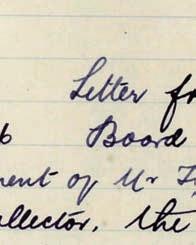 Letter fr
6 Board
ment of Mr
ollector, the